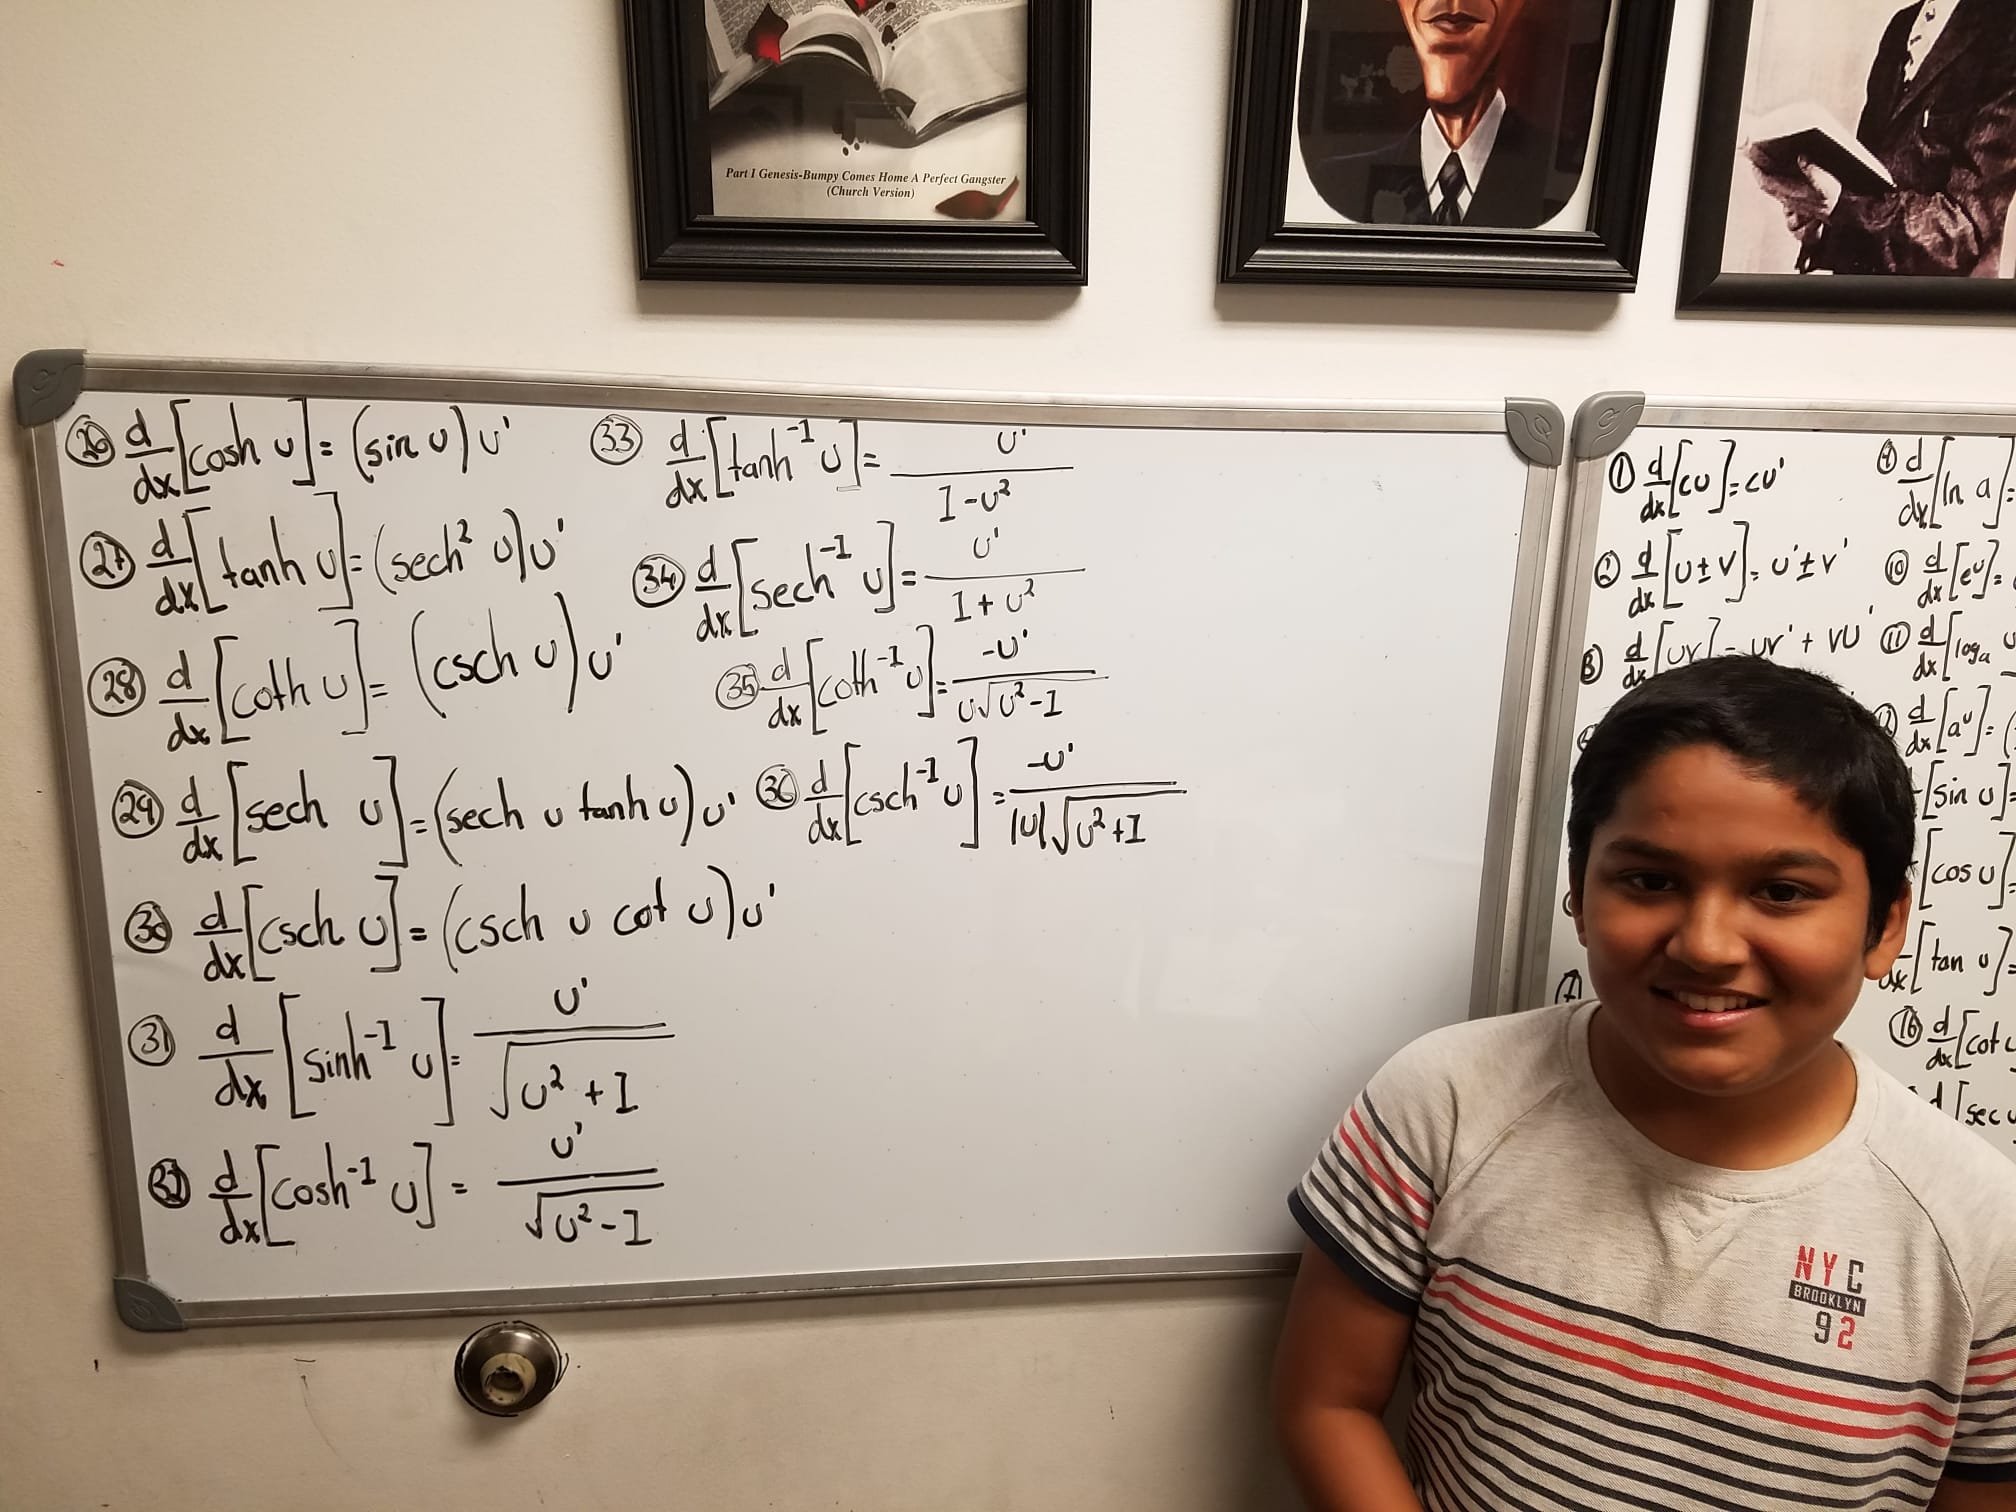 Part I Genesis-Bumpy Comes Home A Perfect Gangster
(Church Version)
26 d/dx [cosh u] = (sin u) u'
27 d/dx [tanh u] = (sech² u) u'
28 d/dx [coth u] = (csch u) u'
29 d/dx [sech u] = (sech u tanh u) u'
30 d/dx [csch u] = (csch u cot u) u'
31 d/dx [sinh⁻¹ u] = u' / √(u² + 1)
32 d/dx [cosh⁻¹ u] = u' / √(u² - 1)
33 d/dx [tanh⁻¹ u] = u' / (1 - u²)
34 d/dx [sech⁻¹ u] = u' / (1 + u²)
35 d/dx [coth⁻¹ u] = -u' / (u√(u² - 1))
36 d/dx [csch⁻¹ u] = -u' / (|u|√(u² + 1))
1 d/dx [cu] = cu'
2 d/dx [u ± v] = u' ± v'
3 d/dx [uv] = uv' + vu'
7
d/dx [ln a] =
10 d/dx [eᵘ] =
11 d/dx [logₐ u
d/dx [aᵘ] = (
[sin u] =
[cos u] =
dx [tan u] =
16 d/dx [cot u
d [sec u
NYC
BROOKLYN
92